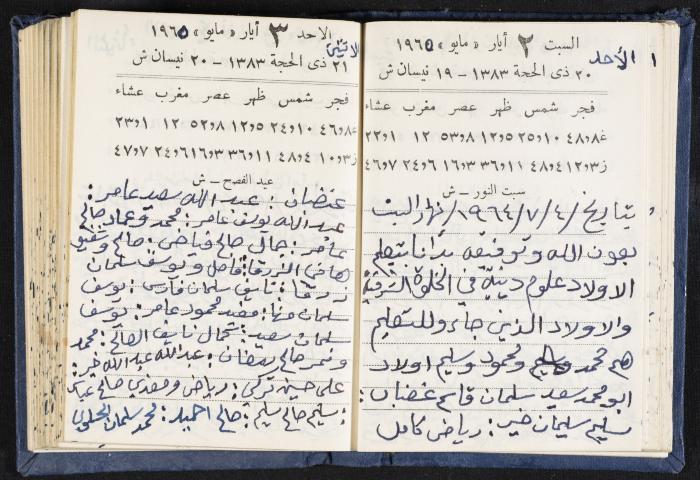 السبت ٢ أيار « مايو » ١٩٦٥
١ الأحد
٢٠ ذى الحجة ١٣٨٣ — ١٩ نيسان ش
فجر شمس ظهر عصر مغرب عشاء
سبت النور — ش
بتاريخ /٤/٧/١٩٦٤/ نهار السبت
بعون الله وتوفيقه بدأنا بتعليم
الاولاد علوم دينية في الخلوة الشرقية
والاولاد الذين جاءو للتعليم
هم محمد ومحمود وسليم اولاد
ابو محمد سعيد سلمان قاسم غضبان :
سليم سليمان خير : رياض كامل
الاحد ٣ أيار « مايو » ١٩٦٥
الاثنين
٢١ ذى الحجة ١٣٨٣ — ٢٠ نيسان ش
فجر شمس ظهر عصر مغرب عشاء
عيد الفصح — ش
غضبان : عبد الله سعيد عامر :
عبد الله يوسف عامر : محمد وعماد صالح
عامر : جمال صالح فياض : صالح وشفيق
هاني الزرقا : فاضل ويوسف سلمان
زرقا : نايف سلمان فارس : يوسف
سلمان مهنا : مفيد محمود عامر : يوسف
سلمان سعيد : كمال نايف الصالح : محمد
ونمر صالح رمضان : عبد الله عبد الله خير :
علي حسين تركي : رياض ومفدي صالح عباس
: سليم صالح سليم : صالح احميد : محمد سلمان الحلبي